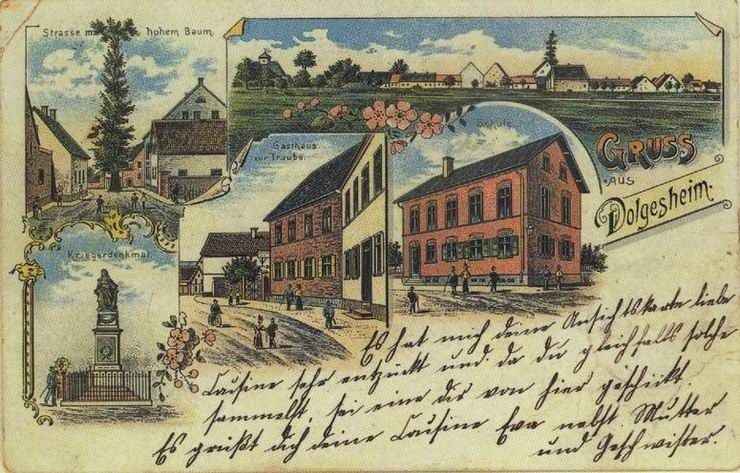 Strasse m. hohem Baum.
Gasthaus
zur Traube.
Schule
GRUSS
AUS
Dolgesheim.
Kriegerdenkmal.
Es hat mich deine Ansichtskarte liebe
Cousine sehr entzückt und da du gleichfalls solche
sammelst, sei eine dir von hier geschickt.
Es grüßt dich deine Cousine Eva nebst Mutter
und Geschwister.